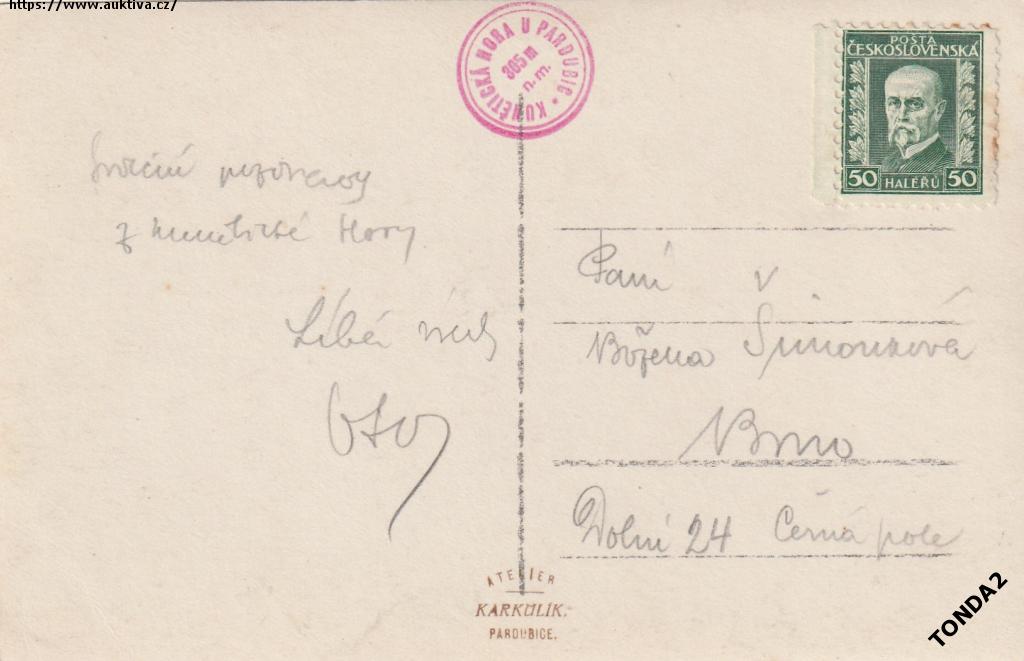 https://www.auktiva.cz/
KUNĚTICKÁ HORA U PARDUBIC •
305 m
n. m.
POŠTA
ČESKOSLOVENSKÁ
50 HALÉŘŮ 50
Srdečné pozdravy
z Kunětické Hory
Líbá
Paní
Božena Šimonková
Brno
Dolní 24 Černá pole
ATELIER
KARKULÍK.
PARDUBICE.
TONDA2